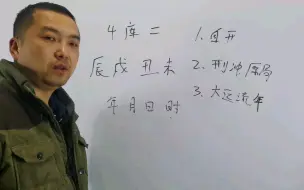 4库=
辰戌丑未
年月日时
1.自开
2.刑冲原局
3.大运流年